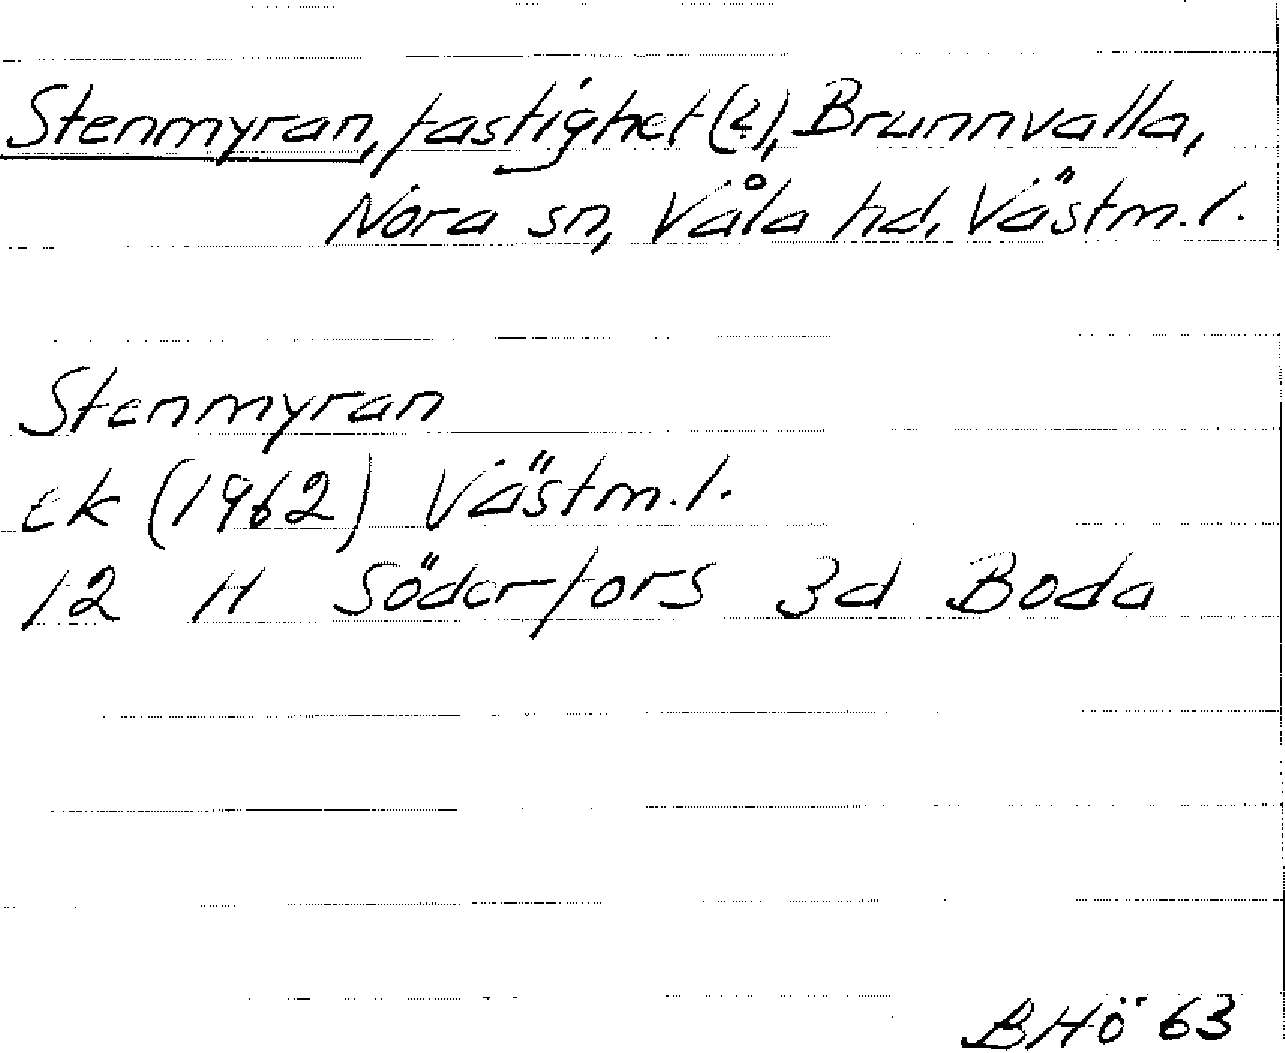 Stenmyran, fastighet (?), Brunnvalla,
Nora sn, Våla hd, Västm.l.
Stenmyran
ek (1962) Västm.l.
12 H Söderfors 3d Boda
BHö 63